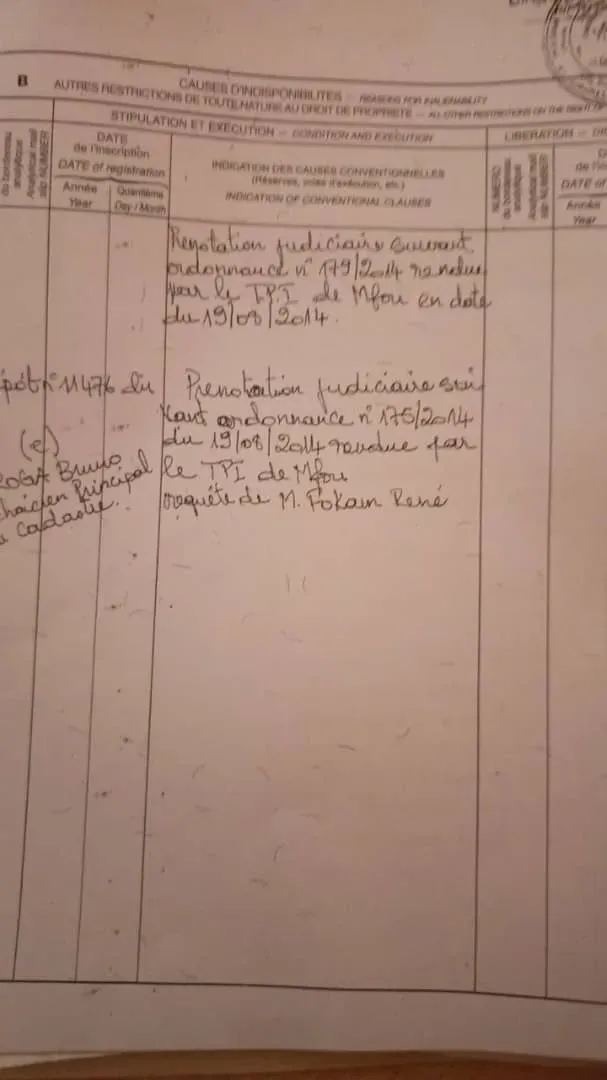 B
CAUSES D'INDISPONIBILITES - REASONS FOR INALIENABILITY
AUTRES RESTRICTIONS DE TOUTE NATURE AU DROIT DE PROPRIETE - ALL OTHER RESTRICTIONS ON THE RIGHT
STIPULATION ET EXECUTION - CONDITION AND EXECUTION
LIBERATION -
du bordereau
analytique
Analytical mail
slip NUMBER
DATE
de l'inscription
DATE of registration
Année
Year
Quantième
Day / Month
INDICATION DES CAUSES CONVENTIONNELLES
(Réserves, voies d'exécution, etc.)
INDICATION OF CONVENTIONAL CLAUSES
NUMERO
du bordereau
analytique
slip NUMBER
DATE of
Année
Year
Prenotation judiciaire suivant
ordonnance n° 179/2014 rendue
par le T.P.I de Mfou en date
du 19/08/2014.
n° 11476 du
Prenotation judiciaire sui
vant ordonnance n° 175/2014
du 19/08/2014 rendue par
le TPI de Mfou
requête de M. Fokam René
(e)
Bruno
Principal
Cadastre.